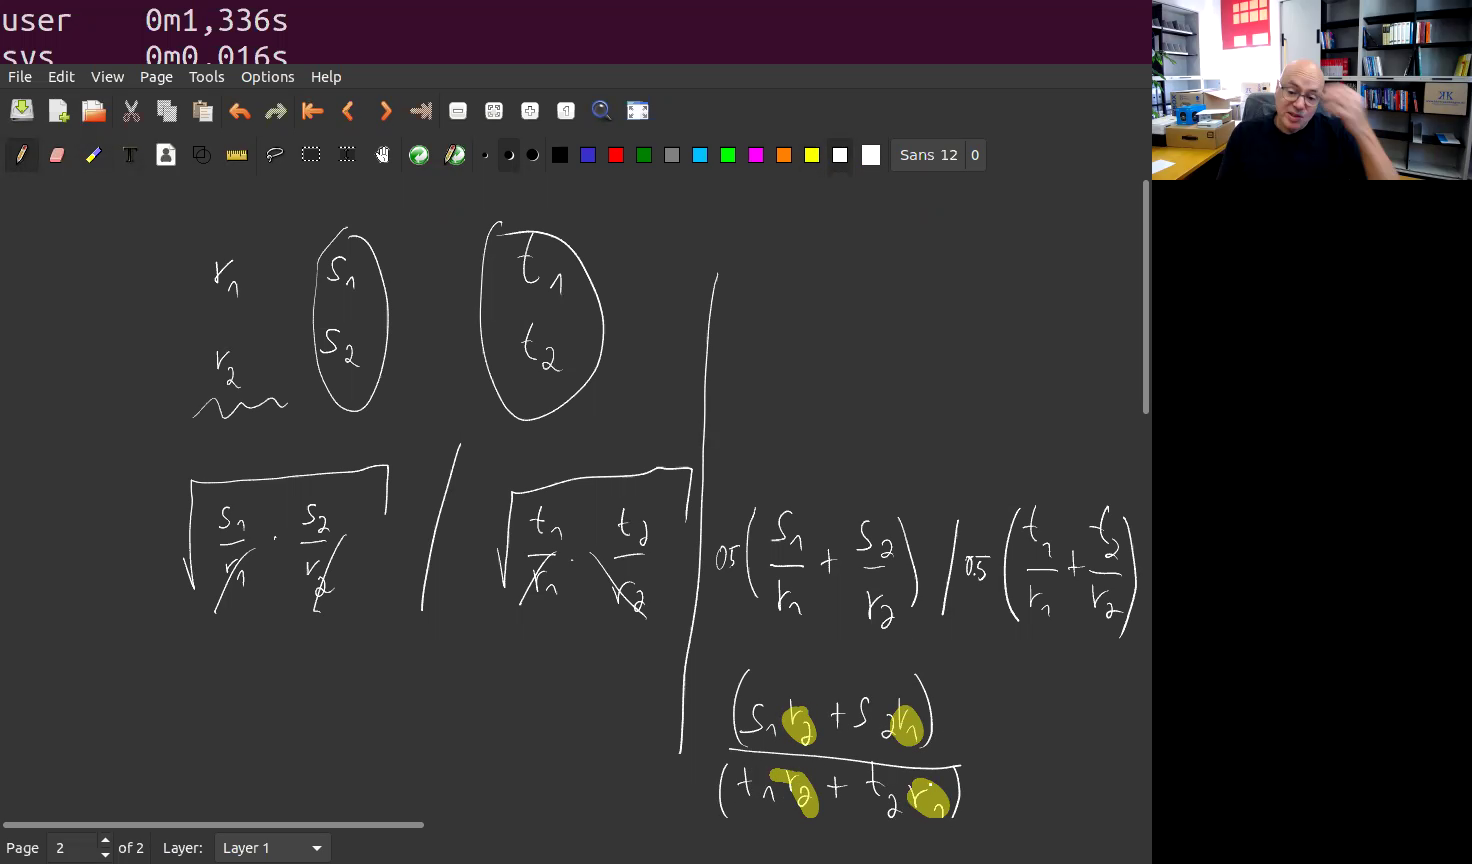 user 0m1,336s
sys 0m0,016s
File Edit View Page Tools Options Help
Sans 12 0
r₁ s₁ t₁
r₂ s₂ t₂
√(s₁/r₁ · s₂/r₂) / √(t₁/r₁ · t₂/r₂)
0.5 (s₁/r₁ + s₂/r₂) / 0.5 (t₁/r₁ + t₂/r₂)
(s₁r₂ + s₂r₁)
(t₁r₂ + t₂r₁)
Page 2 of 2 Layer: Layer 1